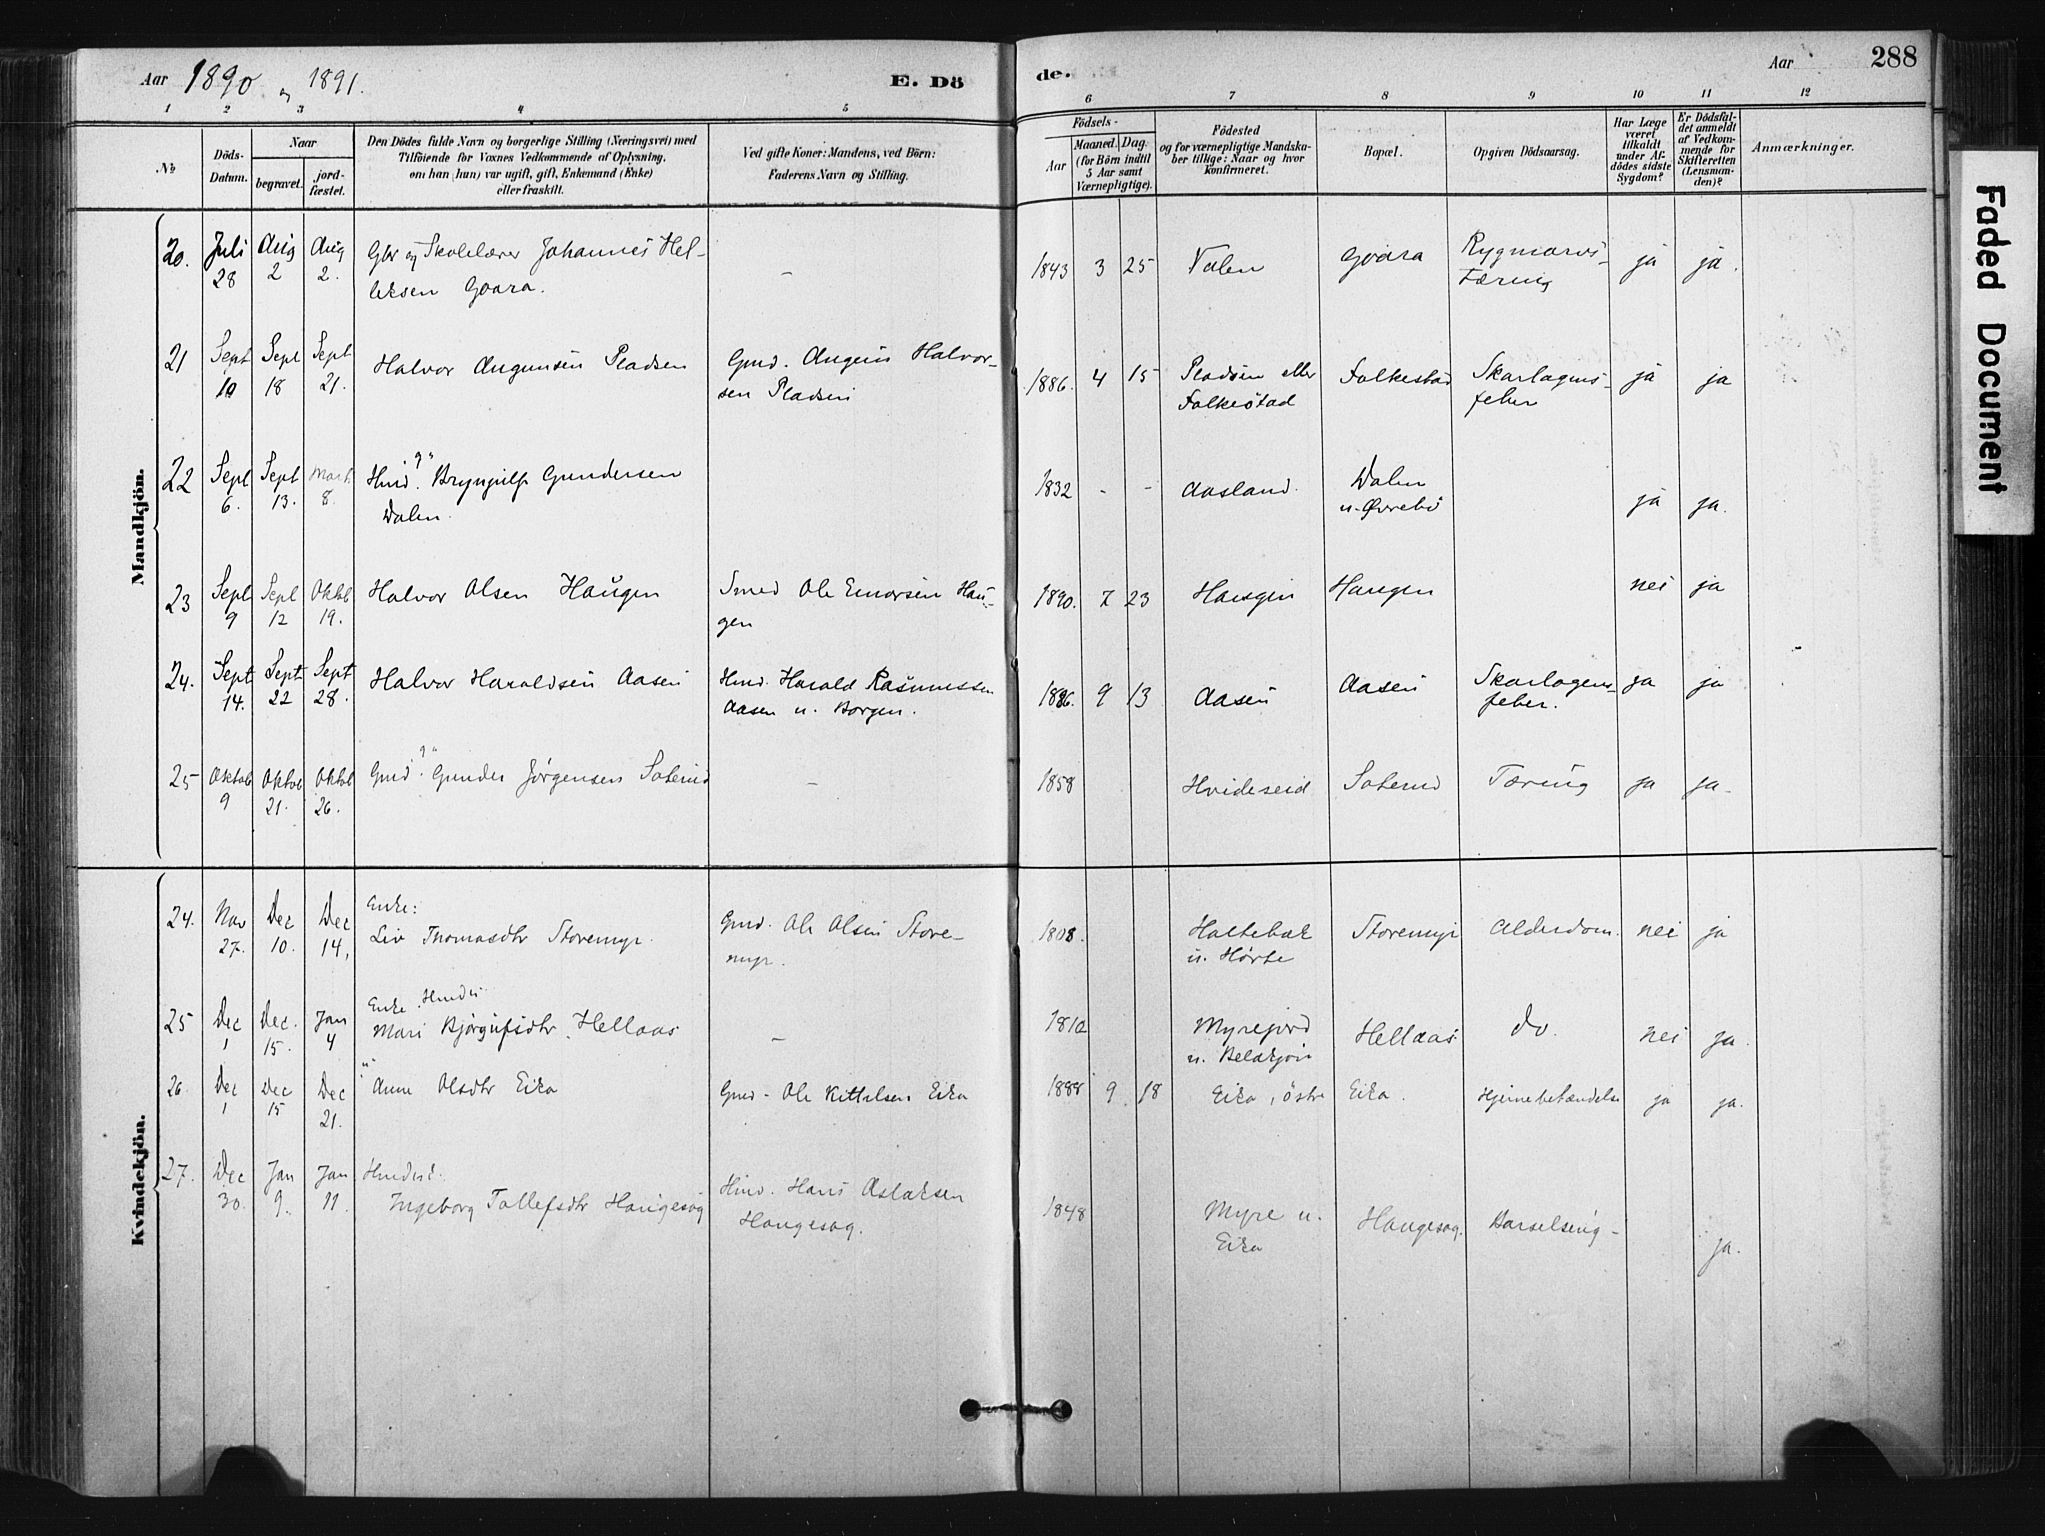 Aar 1890 og 1891.
E. Dö
de.
Aar
288
1 2 3 4 5 6 7 8 9 10 11 12
No
Döds-Datum.
Naar
begravet.
jord-fæstet.
Den Dödes fulde Navn og borgerlige Stilling (Næringsvei) med
Tilföiende for Voxnes Vedkommende af Oplysning,
om han (hun) var ugift, gift, Enkemand (Enke)
eller fraskilt.
Ved gifte Koner: Mandens, ved Börn:
Faderens Navn og Stilling.
Födsels-
Aar
Maaned. Dag.
(for Börn indtil
5 Aar samt
Værnepligtige).
Födested
og for værnepligtige Mandska-
ber tillige: Naar og hvor
konfirmeret.
Bopæl.
Opgiven Dödsaarsag.
Har Læge
været
tilkaldt
under Af-
dödes sidste
Sygdom?
Er Dödsfal-
det anmeldt
af Vedkom-
mende for
Skifteretten
(Lensman-
den)?
Anmærkninger.
Mandkjön.
20. Juli 28 Aug 2 Aug 2. Gbr og Skolelærer Johannes Hel-
leksen Goara. - 1843 3 25 Valen Goara Rygmarvs-
Tæring ja ja.
21 Sept 10 Sept 18 Sept 21. Halvor Augunsen Pladsen Gmd. Augun Halvor-
sen Pladsen 1886. 4 15 Pladsen eller
Folkestad Folkestad Skarlagens-
feber ja ja
22 Sept 6. Sept 13. Marts 8. Hmd. g. Brynjulf Gundersen
Dalen. 1832 - - Aasland. Dalen
u. Øvrebö ja ja.
23 Sept 9 Sept 12 Oktob 19. Halvor Olsen Haugen Smed Ole Einarsen Hau-
gen 1890. 7 23 Haugen Haugen nei ja
24. Sept 14. Sept 22 Sept 28. Halvor Haraldsen Aasen Hmd. Harald Rasmussen
Aasen u. Borgen. 1886. 9 13 Aasen Aasen Skarlagens-
feber. ja ja
25 Oktob 9 Oktob 21. Oktob 26. Gmd. g. Gunder Jørgensen Saterud - 1858 Hvideseid Saterud Tæring ja ja.
Kvindekjön.
24. Nov 27. Dec 10. Dec 14, Enke:
Liv Thomasdtr Storemyr. Gmd. Ole Olsen Store-
myr. 1808. Holtebæk
u. Hørte Storemyr Alderdom. nei ja
25 Dec 1 Dec. 15. Jan 4 Enke
Mari Bjørgufsdtr. Hellaas - 1812 Myrejord
u. Hellaas do. nei ja.
26. Dec 1 Dec 15 Dec 21. Anne Olsdtr Eika Gmd. Ole Kittelsen Eika 1888 9 18 Eika, östre Eika. Hjernebetændelse ja ja.
27. Dec 30. Jan 9. Jan 11. Ingeborg Tollefsdtr Haugesag Hmd. Hans Aslaksen
Haugesag. 1848 Myre u.
Eika Haugesag. Barselseng- ja.
Faded Document